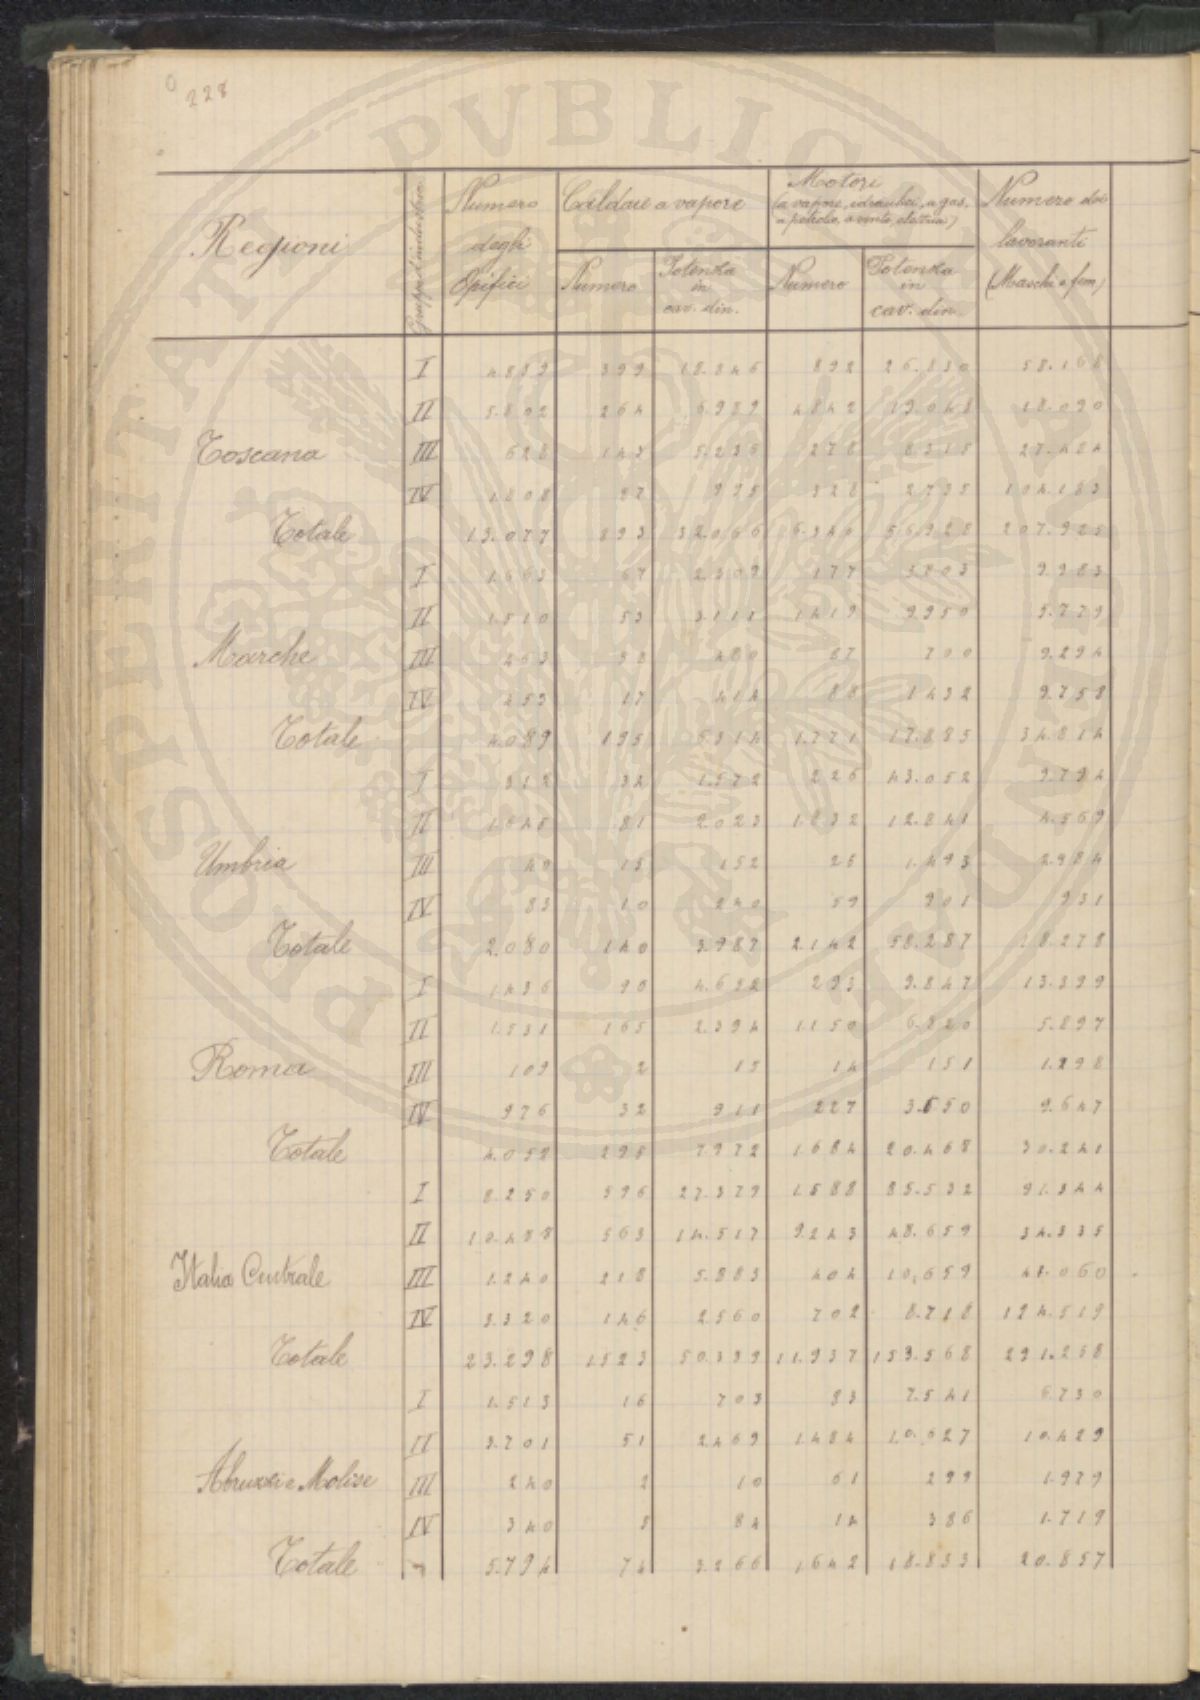 228
Regioni
Gruppi d'industria
Numero
degli
Opifici
Caldaie a vapore
Numero
Potenza
in
cav. din.
Motori
(a vapore, idraulici, a gas,
a petrolio, a vento, elettrici)
Numero
Potenza
in
cav. din.
Numero dei
lavoranti
(Maschi e fem)
I 4.839 399 18.846 892 26.830 58.168
II 5.802 264 6.989 4.842 19.048 18.090
Toscana III 628 143 5.236 278 8.315 27.484
IV 1.808 87 995 328 2.735 104.183
Totale 13.077 893 32.066 6.340 56.928 207.925
I 1.663 67 2.309 177 5.803 9.983
II 1.510 53 3.111 1.419 9.950 5.779
Marche III 463 58 480 87 700 9.294
IV 453 17 414 88 1.432 9.758
Totale 4.089 195 6.314 1.771 17.885 34.814
I 312 34 1.572 226 43.052 9.794
II 1.645 81 2.023 1.832 12.841 4.569
Umbria III 40 15 152 25 1.493 2.984
IV 83 10 240 59 901 931
Totale 2.080 140 3.987 2.142 58.287 18.278
I 1.436 90 4.652 293 9.847 13.399
II 1.531 165 2.394 1.150 6.820 5.897
Roma III 109 2 15 14 151 1.298
IV 976 32 911 227 3.650 9.647
Totale 4.052 295 7.972 1.684 20.468 30.241
I 8.250 596 27.379 1.588 85.532 91.344
II 10.488 563 14.517 9.243 48.659 34.335
Italia Centrale III 1.240 218 5.883 404 10.659 41.060
IV 3.320 146 2.560 702 8.718 124.519
Totale 23.298 1.523 50.339 11.937 153.568 291.258
I 1.513 16 703 83 7.541 6.730
II 3.701 51 2.469 1.484 10.627 10.429
Abruzzi e Molise III 240 2 10 61 299 1.979
IV 340 5 84 14 386 1.719
Totale 5.794 74 3.266 1.642 18.853 20.857
PROSPERITATI PUBLICAE